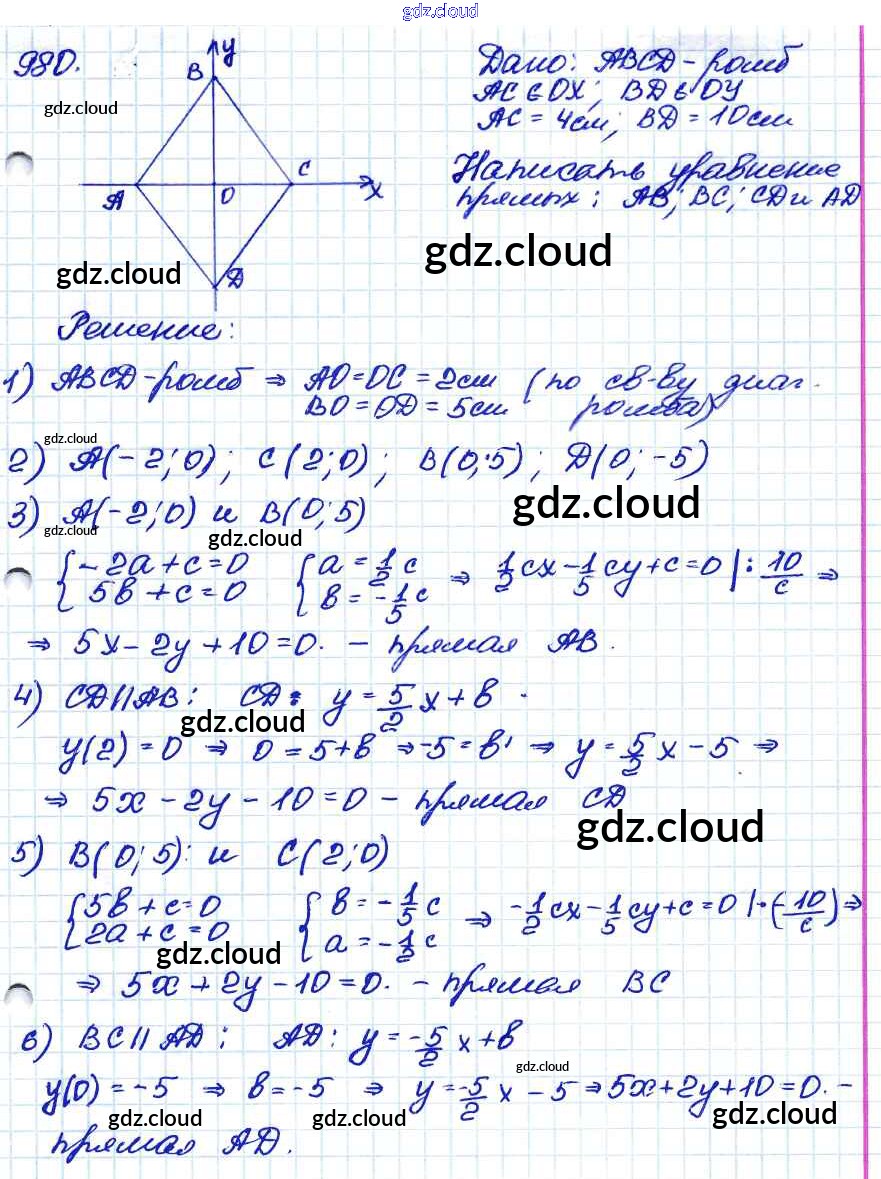 gdz.cloud
980.
B y
A O C x
D
Дано: ABCD - ромб
AC ∈ OX; BD ∈ OY
AC = 4см; BD = 10см
Написать уравнение
прямых: AB; BC; CD и AD
gdz.cloud
gdz.cloud
gdz.cloud
Решение:
1) ABCD - ромб ⇒ AO = OC = 2см (по св-ву диаг.
BO = OD = 5см ромба)
gdz.cloud
2) A(-2; 0); C(2; 0); B(0; 5); D(0; -5)
3) A(-2; 0) и B(0; 5)
gdz.cloud
gdz.cloud
gdz.cloud
{-2a + c = 0 {a = 1/2 c ⇒ 1/2 cx - 1/5 cy + c = 0 | : 10/c ⇒
{5b + c = 0 {b = -1/5 c
⇒ 5x - 2y + 10 = 0. - прямая AB.
4) CD || AB: CD: y = 5/2 x + b.
gdz.cloud
y(2) = 0 ⇒ 0 = 5 + b ⇒ -5 = b ⇒ y = 5/2 x - 5 ⇒
⇒ 5x - 2y - 10 = 0 - прямая CD
gdz.cloud
5) B(0; 5) и C(2; 0)
{5b + c = 0 {b = -1/5 c ⇒ -1/2 cx - 1/5 cy + c = 0 | · (-10/c) ⇒
{2a + c = 0 {a = -1/2 c
gdz.cloud
⇒ 5x + 2y - 10 = 0. - прямая BC
6) BC || AD: AD: y = -5/2 x + b
gdz.cloud
y(0) = -5 ⇒ b = -5 ⇒ y = -5/2 x - 5 ⇒ 5x + 2y + 10 = 0. -
gdz.cloud
gdz.cloud
gdz.cloud
прямая AD.